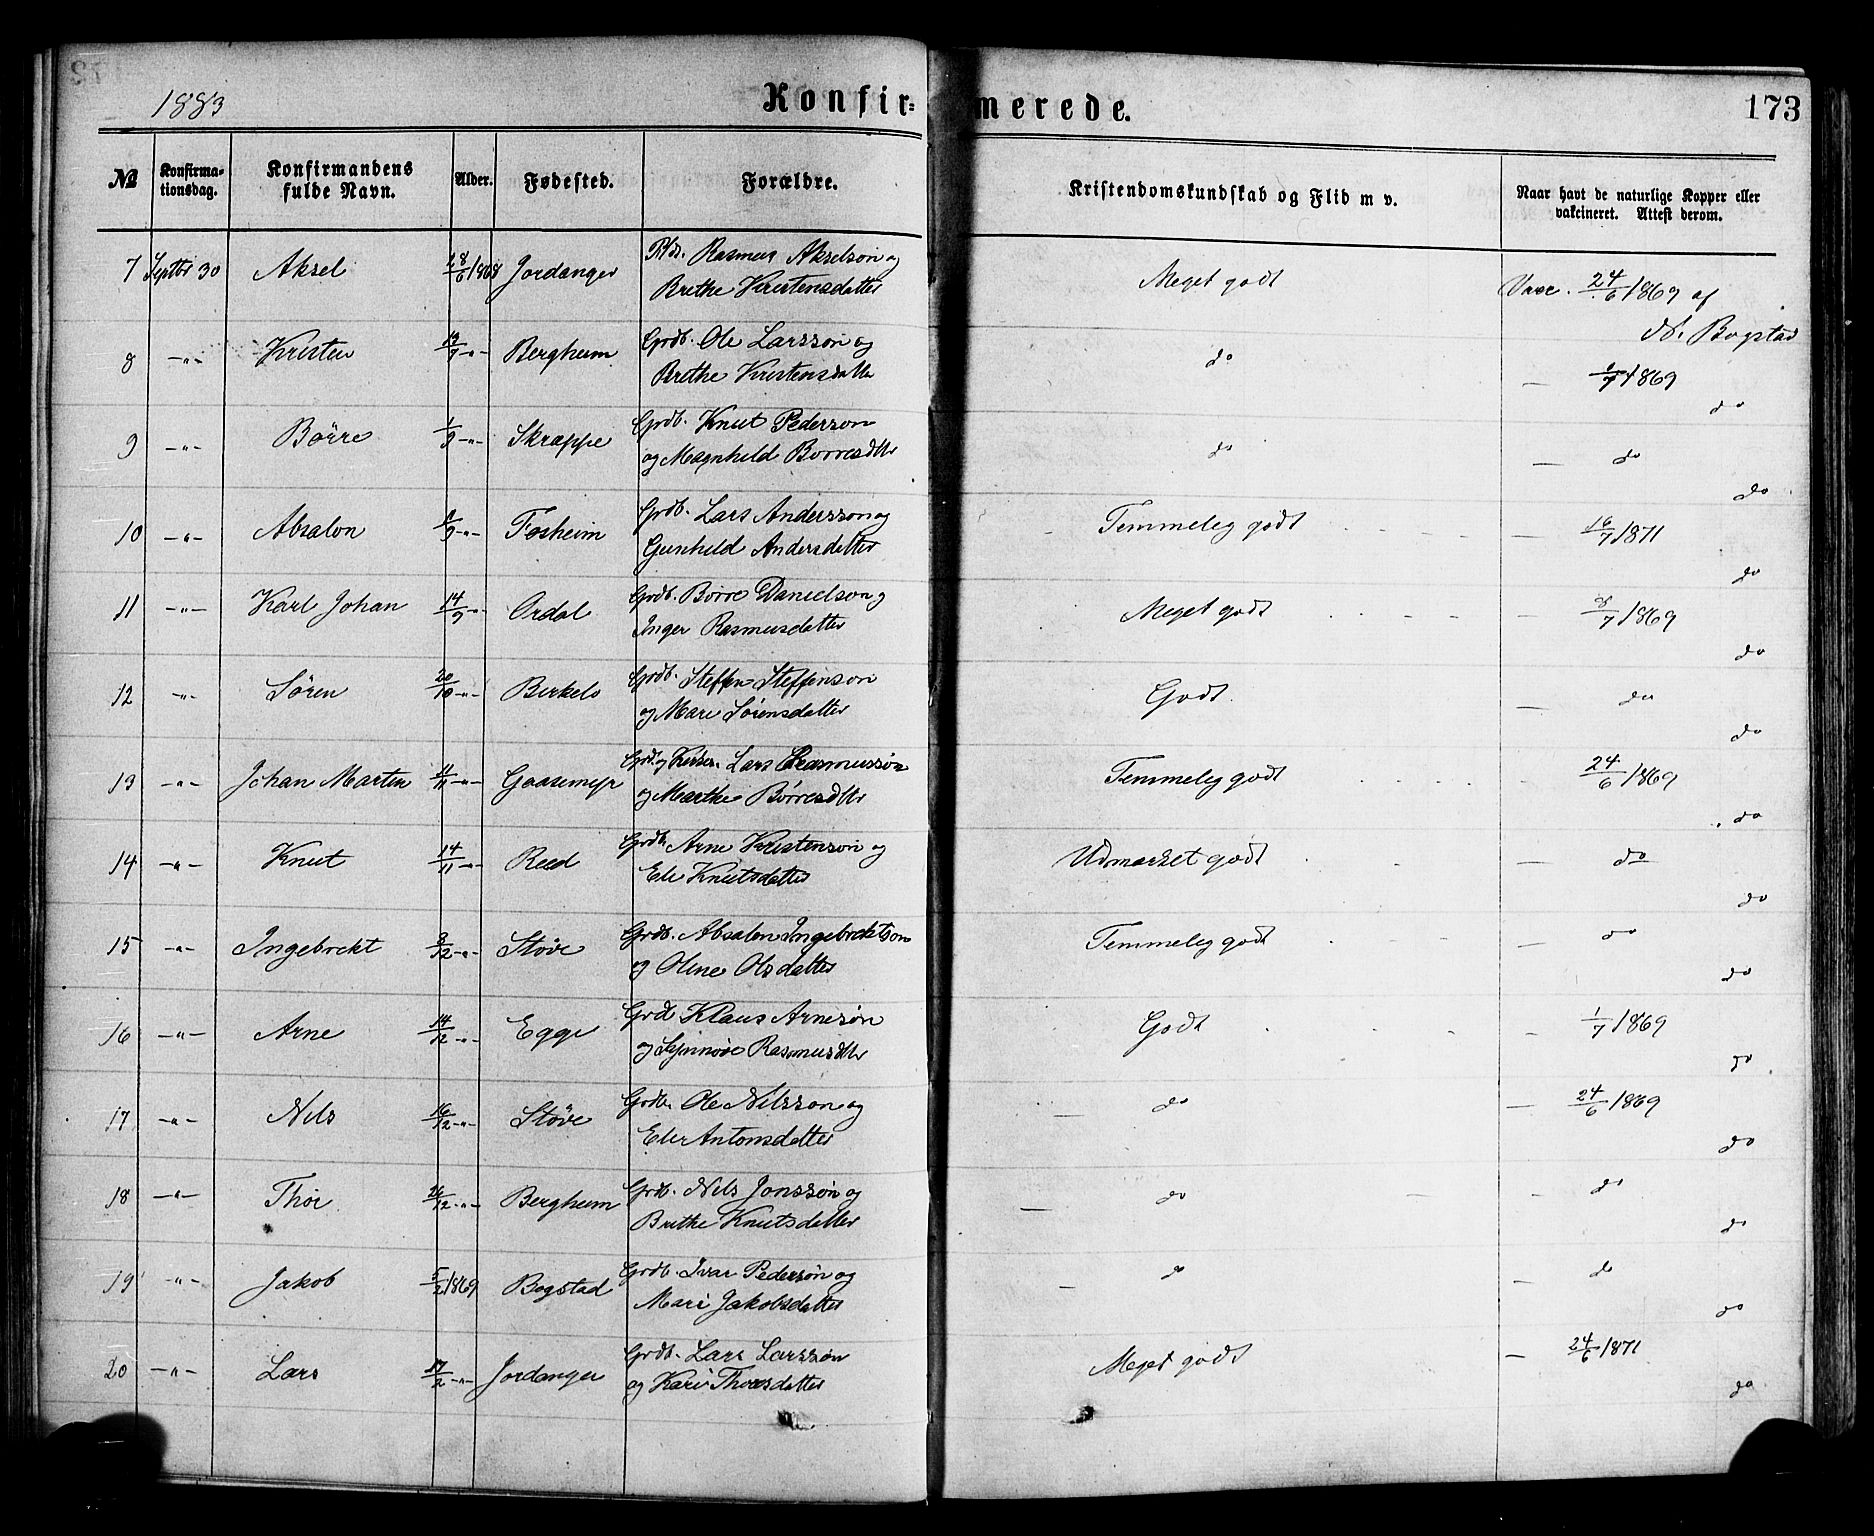 1883 Konfirmerede. 173
№ Konfirmationsdag. Konfirmandens fulde Navn. Alder. Fødested. Forældre. Kristendomskundskab og Flid m v. Naar havt de naturlige Kopper eller vakcineret. Attest derom.
7 Septbr 30 Aksel 28/6 1868 Jordanger Rasmus Akselsøn og Meget godt Vacc. 24/6 1869 af
Brithe Kristensdatter N. Bogstad
8 -"- Kristen 13/7 -"- Bergheim Grdb. Ole Larssøn og do — 1/7 1869
Brithe Kristensdatter do
9 -"- Börre 1/9 -"- Skrappe Grdb. Knut Pedersøn do — do
og Magnhild Börresdtr do
10 -"- Absalon 8/9 -"- Fosheim Grdb. Lars Anderssøn og Temmelig godt — 16/7 1871
Gunhild Andersdatter do
11 -"- Karl Johan 14/9 -"- Ordal Grdb. Börre Danielsøn og Meget godt — 8/7 1869
Inger Rasmusdatter do
12 -"- Sören 20/10 -"- Birkelo Grdb. Steffen Steffensøn Godt — do
og Mari Sörensdatter do
13 -"- Johan Martin 11/11 -"- Gaasemyr Lars Rasmussøn Temmelig godt 24/6 1869
og Marthe Börresdtr do
14 -"- Knut 14/11 -"- Reed Grdb. Arne Kristensøn og Udmærket godt — do
Eli Knutsdatter do
15 -"- Ingebrekt 3/12 -"- Støve Grdb. Absalon Ingebrektsøn Temmelig godt — do
og Oline Olsdatter do
16 -"- Arne 14/12 -"- Egge Grdb Klaus Arnesøn Godt — 1/7 1869
og Synnøve Rasmusdtr do
17 -"- Nils 16/12 -"- Støve Grdb. Ole Nilssøn og — do — 24/6 1869
Eli Antonsdatter do
18 -"- Thor 26/12 -"- Bergheim Grdb. Nils Jonssøn og — do — do
Brithe Knutsdatter do
19 -"- Jakob 5/2 1869 Bogstad Grdb. Ivar Pedersøn og — do — do
Mari Jakobsdatter do
20 -"- Lars 17/2 -"- Jordanger Grdb. Lars Larssøn Meget godt — 24/6 1871
og Kari Thorsdatter do